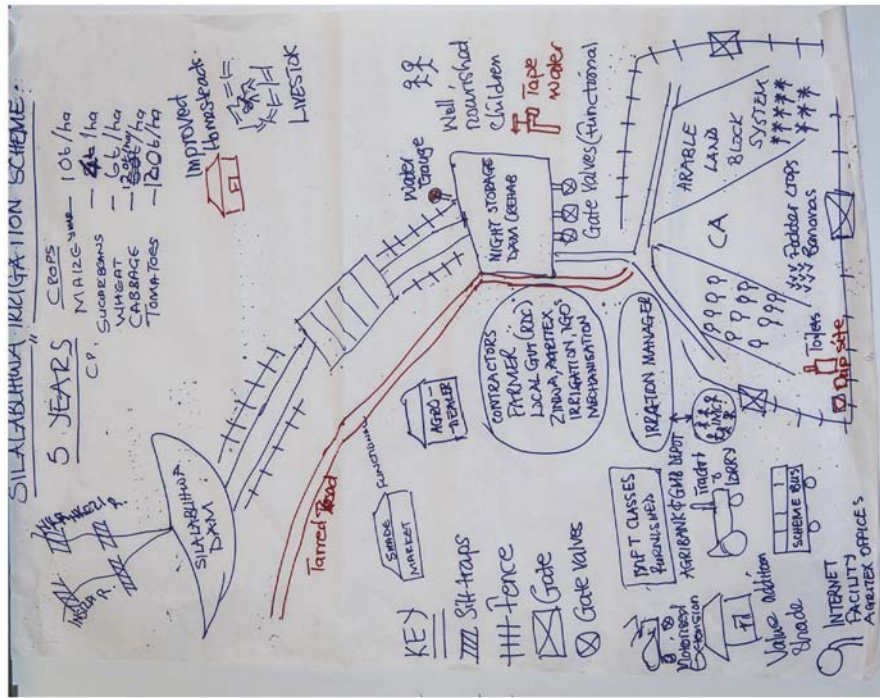 SILALABUHWA IRRIGATION SCHEME:
5 YEARS
CROPS
MAIZE
10t/ha
C.P.
SUGARBEANS
/ha
WHEAT
6t/ha
CABBAGE
TOMATOES
120t/ha
Improved
Homesteads
LIVESTOK
SILALABUHWA
DAM
Tarred Road
Water
Gauge
Well
nourished
children
Tape
Water
NIGHT STORAGE
DAM (REHAB
Gate Valves (functional
SHADE
MARKET
FUNCTIONAL
AGRO-
DEALER
CONTRACTORS
FARMER
LOCAL GVT (RDC)
ZINWA, AGRITEX
IRRIGATION, NGO'
MECHANISATION
IRRATION MANAGER
ARABLE
LAND
BLOCK
SYSTEM
CA
Fodder crops
Bananas
Toilets
Dip site
KEY
Silt traps
Fence
Gate
Gate valves
FURNISHED
AGRIBANK & GMB DEPOT
IMC
LORRY
SCHEME BUS
Motorised
Extension
Value addition
Shade
INTERNET
FACILITY
AGRITEX OFFICES